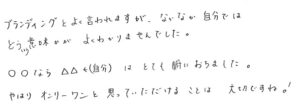 ブランディングとよく言われますが、なかなか自分では
どういう意味かが よくわかりませんでした。
〇〇なら △△さん(自分) は とても 腑におちました。
やはり オンリーワンと 思っていただけることは 大切ですね!